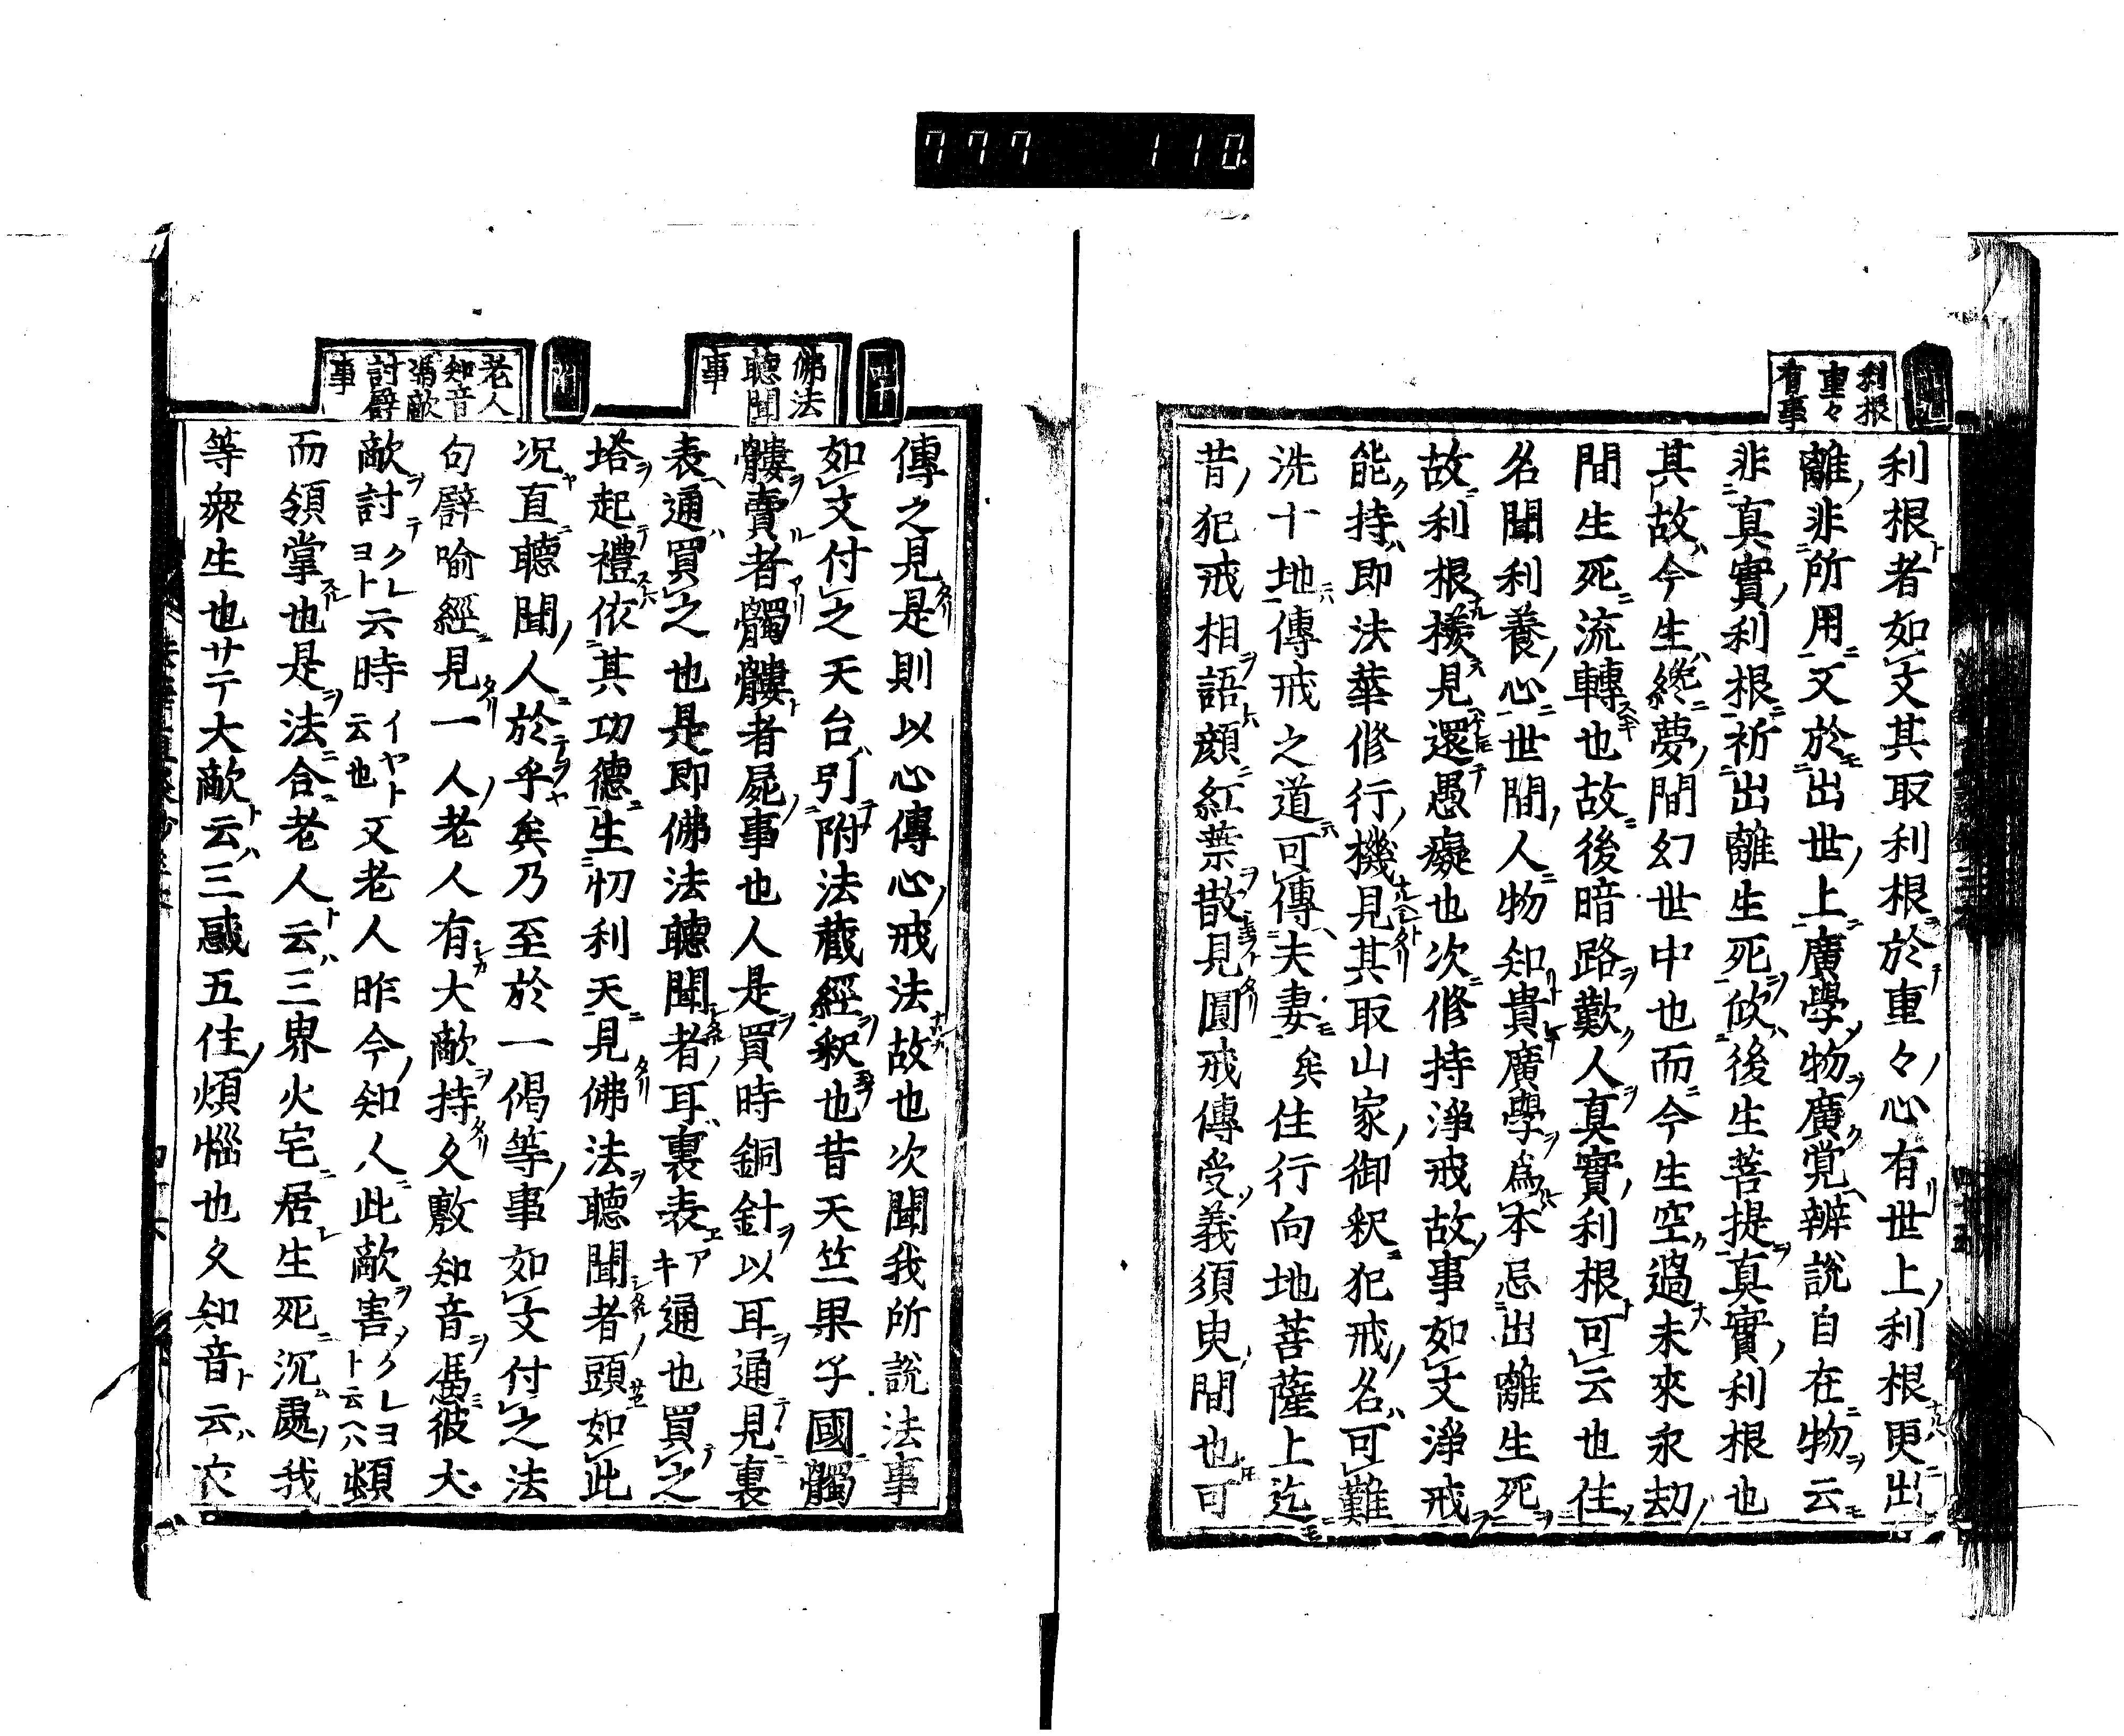 777 110
利根
重々
有事
利根者如文其取利根於重々心有世上利根更出
離非所用文於出世上廣學物廣覚辨說自在物云
非真實利根祈出離生死欣後生菩提真實利根也
其故今生纔夢間幻世中也而今生空過未來永劫
間生死流轉也故後暗路歎人真實利根可云也住
名聞利養心世間人物知貴廣學為本忌出離生死
故利根樣見還愚癡也次修持淨戒故事如文淨戒
能持即法華修行機見其取山家御釈犯戒名可難
洗十地傳戒之道可傳夫妻矣住行向地菩薩上迄
昔犯戒相語顔紅葉散見圓戒傳受義須臾間也可
四十
佛法
聴聞
事
老人
知音
憑敵
討譬
事
傳之見是則以心傳心戒法故也次聞我所說法事
如文付之天台引附法蔵經釈也昔天竺果子國髑
髏賣者髑髏者屍事也人是買時銅針以耳通見裏
表通買之也是即佛法聴聞者耳裏表アキ通也買之
塔起禮依其功德生忉利天見佛法聴聞者頭如此
况直聴聞人於乎矣乃至於一偈等事如文付之法
句譬喻經見一人老人有大敵持又敷知音憑彼大
敵討クレヨト云時イヤト云也又老人昨今知人此敵害クレヨト云ヘハ頬
而領掌也是法合老人云三界火宅居生死沉處我
等衆生也サテ大敵云三惑五住煩惱也又知音云六